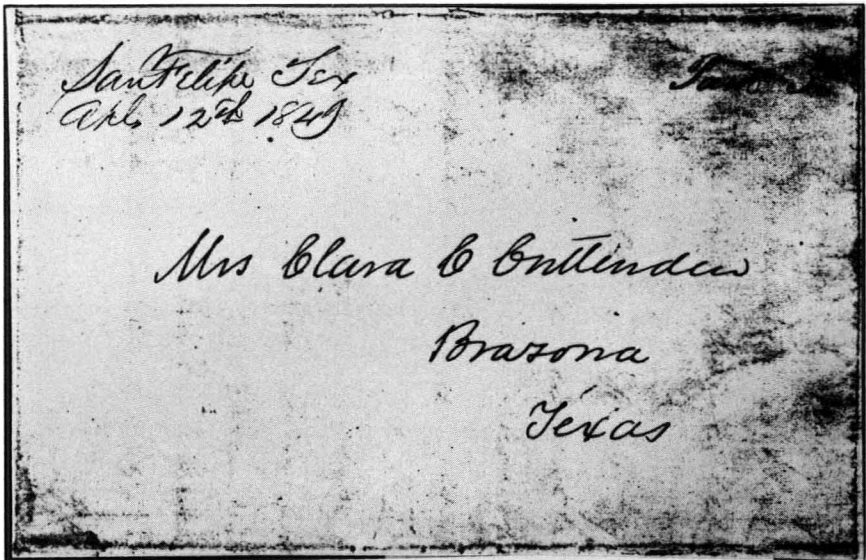 San Felipe Tex
Apl. 12th 1849
Mrs Clara C Crittenden
Brazoria
Texas